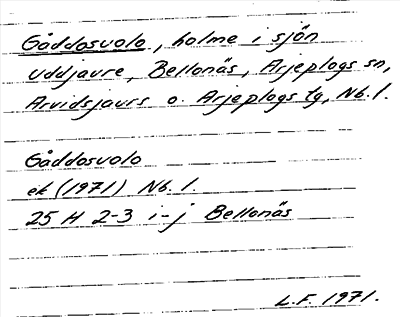 Gåddosuolo, holme i sjön
Uddjaure, Bellonäs, Arjeplogs sn,
Arvidsjaurs o. Arjeplogs tg, Nb. l.
Gåddosuolo
ek (1971) Nb. l.
25 H 2-3 i-j Bellonäs
L.F. 1971.